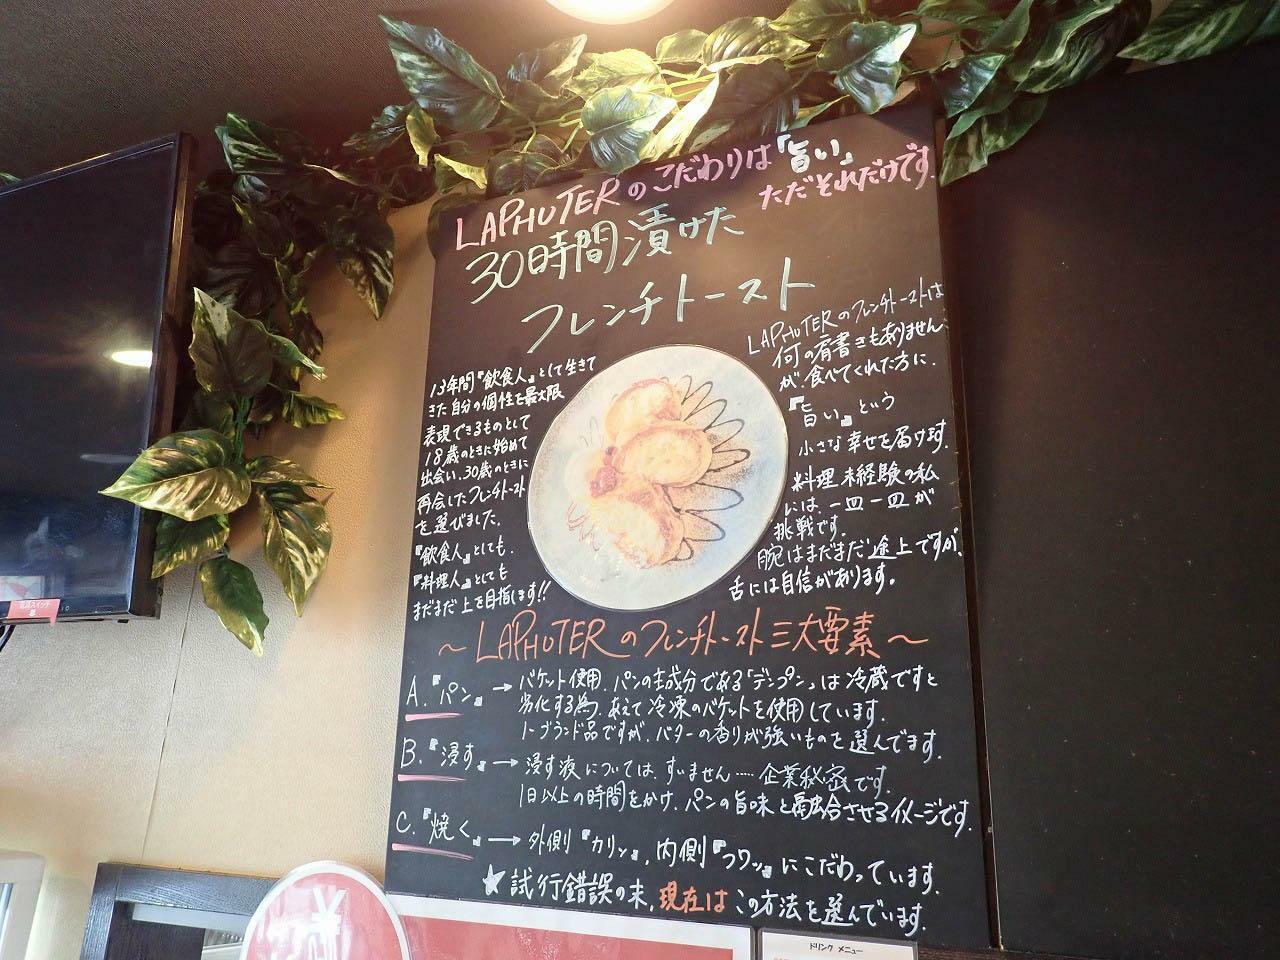 LAPHUTERのこだわりは「旨い」
ただそれだけです。
30時間漬けた
フレンチトースト
13年間『飲食人』として生きて
きた自分の個性を最大限
表現できるものとして
18歳のときに始めて
出会い、30歳のときに
再会したフレンチトースト
を選びました。
『飲食人』としても、
『料理人』としても
まだまだ上を目指します!!
LAPHUTERのフレンチトーストは
何の肩書きもありません
が、食べてくれた方に、
『旨い』という
小さな幸せを届けます。
料理未経験の私
には、一皿一皿が
挑戦です。
腕はまだまだ途上ですが、
舌には自信があります。
～LAPHUTERのフレンチトースト三大要素～
A.『パン』→バケット使用。パンの主成分である「デンプン」は冷蔵ですと
劣化する為、あえて冷凍のバケットを使用しています。
トーブランド品ですが、バターの香りが強いものを選んでます。
B.『浸す』→浸す液については、すいません……企業秘密です。
1日以上の時間をかけ、パンの旨味と融合させるイメージです。
C.『焼く』→外側『カリッ』、内側『フワッ』にこだわっています。
★試行錯誤の末、現在はこの方法を選んでいます。
ドリンク メニュー
電源スイッチ